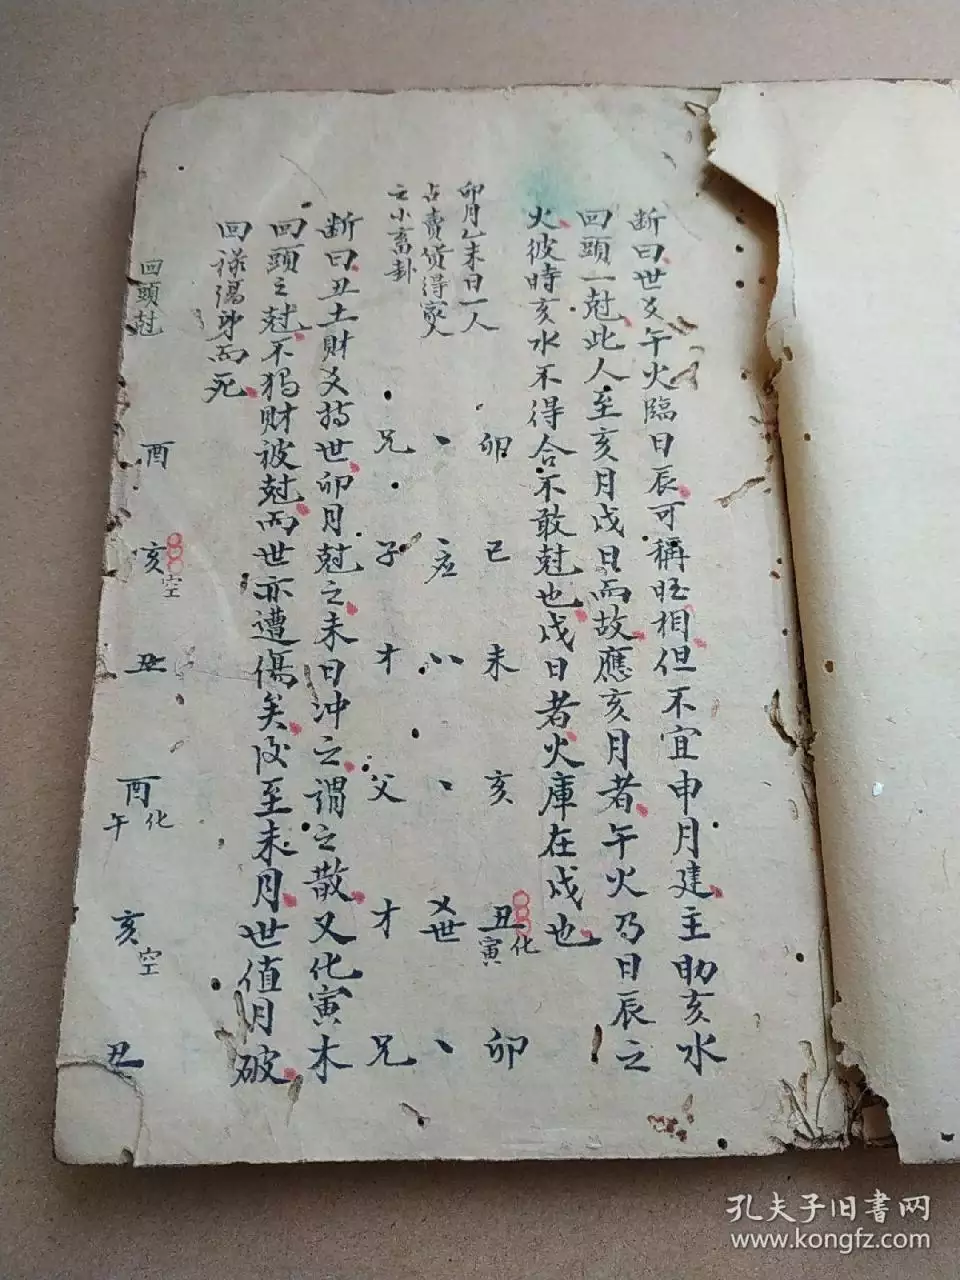 断曰世爻午火臨日辰可稱旺相但不宜申月建主助亥水
回頭一尅此人至亥月戌日而故應亥月者午火乃日辰之
火彼時亥水不得合不敢尅也戌日者火庫在戌也
卯月乙未日一人
占賣貨得家人
之小畜卦
卯 巳 未 亥 丑 化寅 卯
丶 应 丷 丶 乂世 丶
兄 子 才 父 才 兄
断曰丑土財爻持世卯月尅之未日冲之謂之散又化寅木
回頭之尅不獨財被尅而世亦遭傷矣後至未月世值月破
回祿傷身而死
回頭尅
酉 亥空 丑 酉化午 亥空 丑
孔夫子旧书网
www.kongfz.com